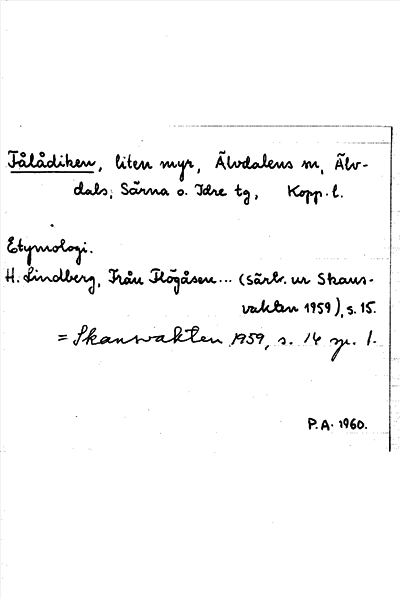 Tålådiken, liten myr, Älvdalens m, Älv-
dals, Särna o. Idre tg, Kopp. l.
Etymologi.
H. Lindberg, Från Flögåsen... (särtr. ur Skans-
vakten 1959), s. 15.
= Skansvakten 1959, s. 14 sp. 1.
P.A. 1960.